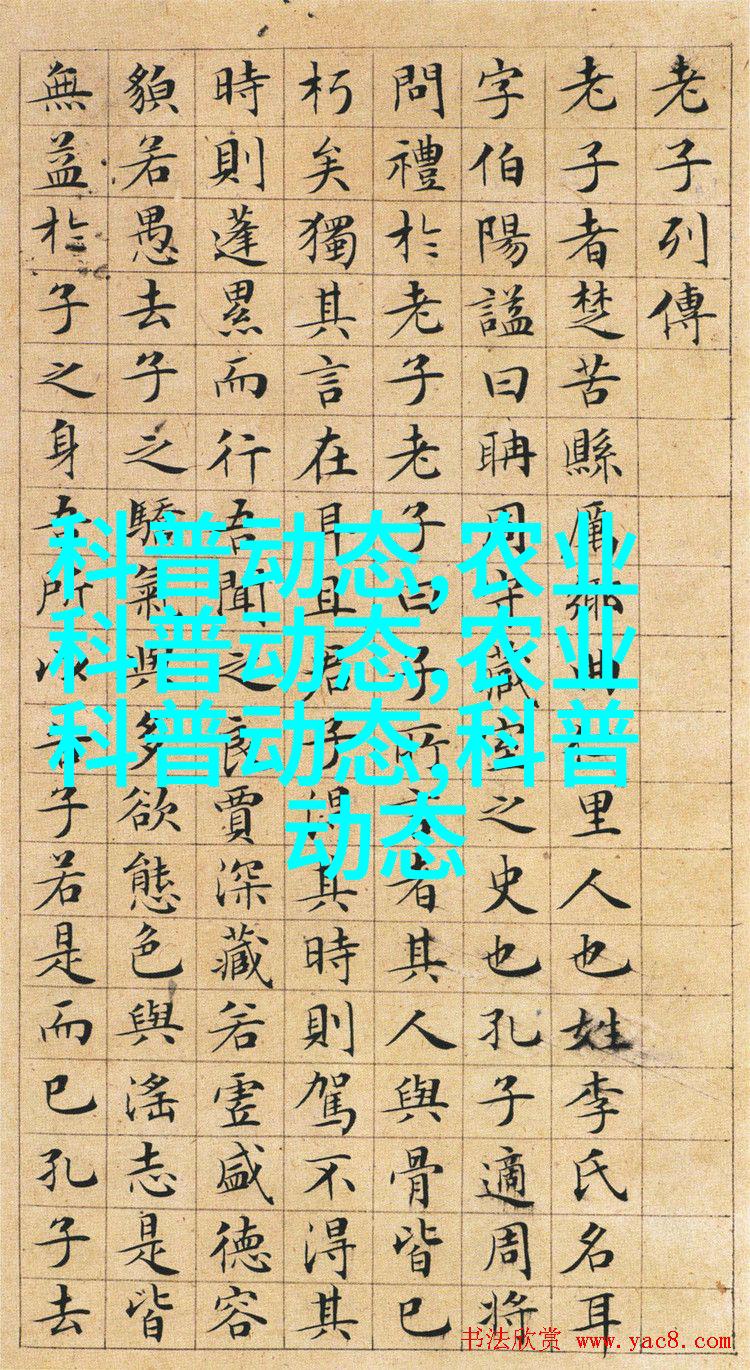 老子列傳
老子者楚苦縣厲鄉里人也姓李氏名耳
字伯陽謚曰聃周守藏室之史也孔子適周將
問禮於老子老子曰子所言者其人與骨皆已
朽矣獨其言在耳且君子得其時則駕不得其
時則蓬累而行吾聞之良賈深藏若虛盛德容
貌若愚去子之驕氣與多欲態色與淫志是皆
無益於子之身吾所以告子若是而已孔子去
科普动态,农业
科普动态,农业
科普动态,科普
动态
书法欣赏 www.yac8.com